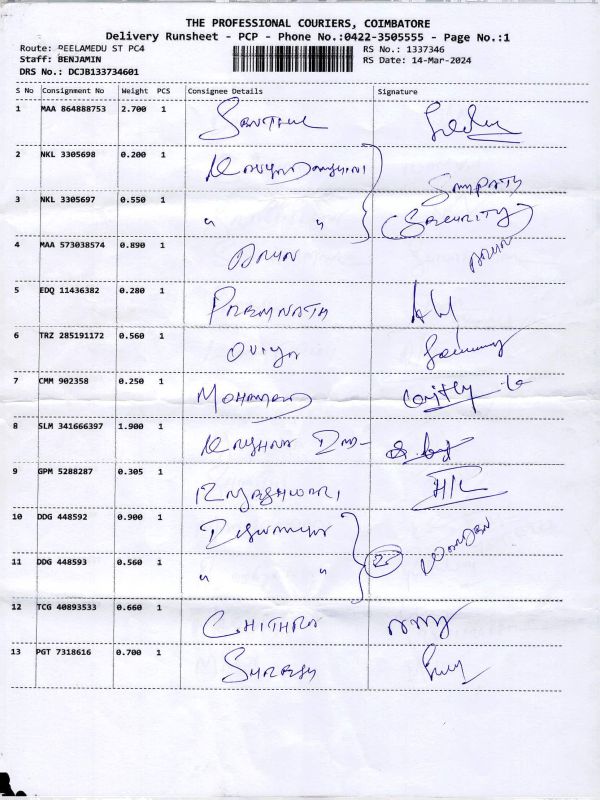 THE PROFESSIONAL COURIERS, COIMBATORE
Delivery Runsheet - PCP - Phone No.:0422-3505555 - Page No.:1
Route: PEELAMEDU ST PC4 RS No.: 1337346
Staff: BENJAMIN RS Date: 14-Mar-2024
DRS No.: DCJB133734601
S No Consignment No Weight PCS Consignee Details Signature
1 MAA 864888753 2.700 1
2 NKL 3305698 0.200 1
3 NKL 3305697 0.550 1 " " SAMPATH (SECURITY)
4 MAA 573038574 0.890 1 ARUN ARUN
5 EDQ 11436382 0.280 1 PREMNATH
6 TRZ 285191172 0.560 1 OVIYA
7 CMM 902358 0.250 1 MOHAMMED
8 SLM 341666397 1.900 1 KRISHNA
9 GPM 5288287 0.305 1 RAJESHWARI H/L
10 DDG 448592 0.900 1 WARDEN
11 DDG 448593 0.560 1 " "
12 TCG 40893533 0.660 1 CHITHRA
13 PGT 7318616 0.700 1 SURESH